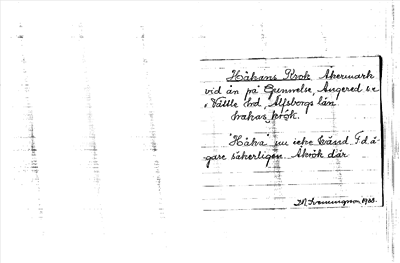 Håkans Krok Åkermark
vid ån på Gunnelse, Angered s:n
Vättle hd, Älfsborgs län
håkas krok.
"Håka" nu icke känd. F.d. ä-
gare säkerligen. Åkrök där
1908.